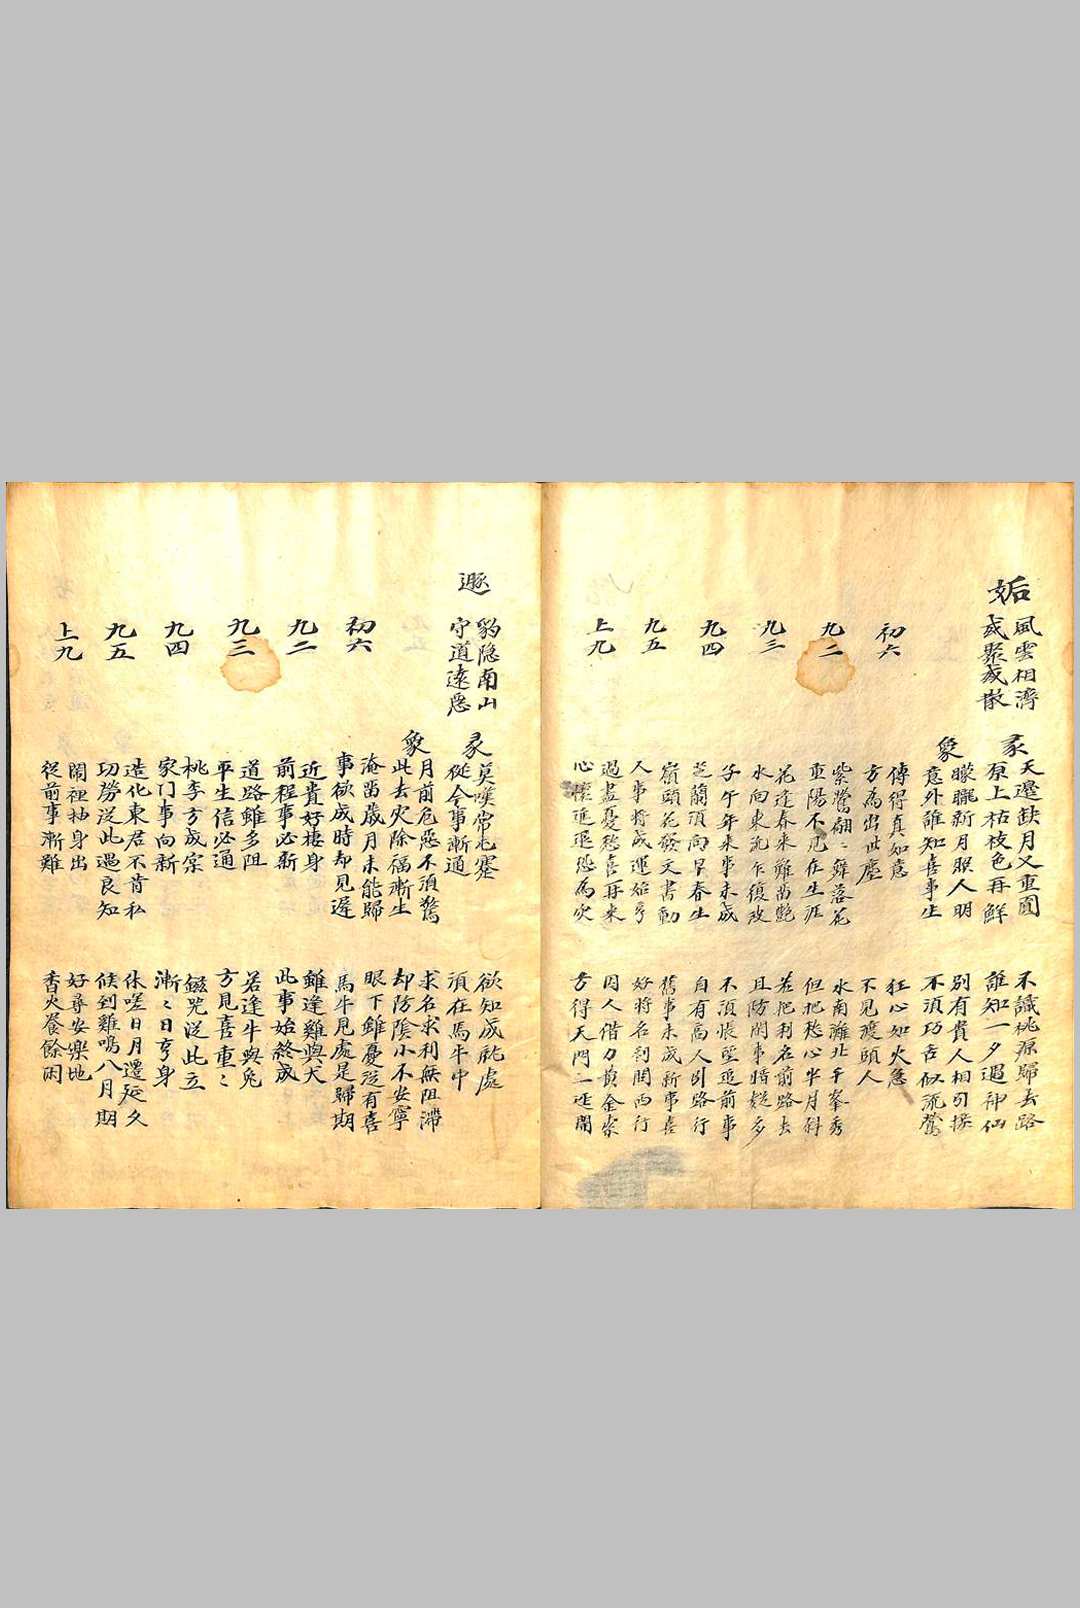 姤
風雲相濟
或聚或散
彖
天邊缺月又重圓
原上枯枝色再鮮
不識桃源歸去路
誰知一夕遇神仙
象
朦朧新月照人明
意外誰知喜事生
別有貴人相引援
不須巧舌似流鶯
初六
傳得真如意
方為出世塵
狂心如火急
不見渡頭人
九二
紫鶯翩〻舞落花
重陽不見在生涯
水南灘北千峯秀
但把愁心半月斜
九三
花逢春來難留艷
水向東流乍復改
若把利名前路去
且防閑事暗疑多
九四
子午年來事未成
芝蘭須向早春生
不須悵望追前事
自有高人引路行
九五
嶺頭花發文書動
人事將成運始亨
舊事未成新事喜
好將名利関西行
上九
過盡憂愁喜再來
心懷進退恐為災
因人借力黃金榮
方得天門一道開
遯
豹隐南山
守道遠惡
彖
莫嘆常屯蹇
從今事漸通
欲知成就處
須在馬牛中
象
月前厄惡不須驚
此去災除福漸生
求名求利無阻滯
却防陰小不安寧
初六
淹留歲月未能歸
事欲成時却見遲
眼下雖憂從有喜
馬牛見處是歸期
九二
近貴好棲身
前程事必新
雖逢雞與犬
此事始終成
九三
道路雖多阻
平生信必通
若逢牛與兔
方見喜重〻
九四
桃李方成宗
家门事向新
鰲咒從此立
漸〻日亨身
九五
造化東君不肯私
功勞從此遇良知
休嗟日月遷延久
候到雞鳴八月期
上九
閙裡抽身出
從前事漸難
好尋安樂地
香火養餘閑